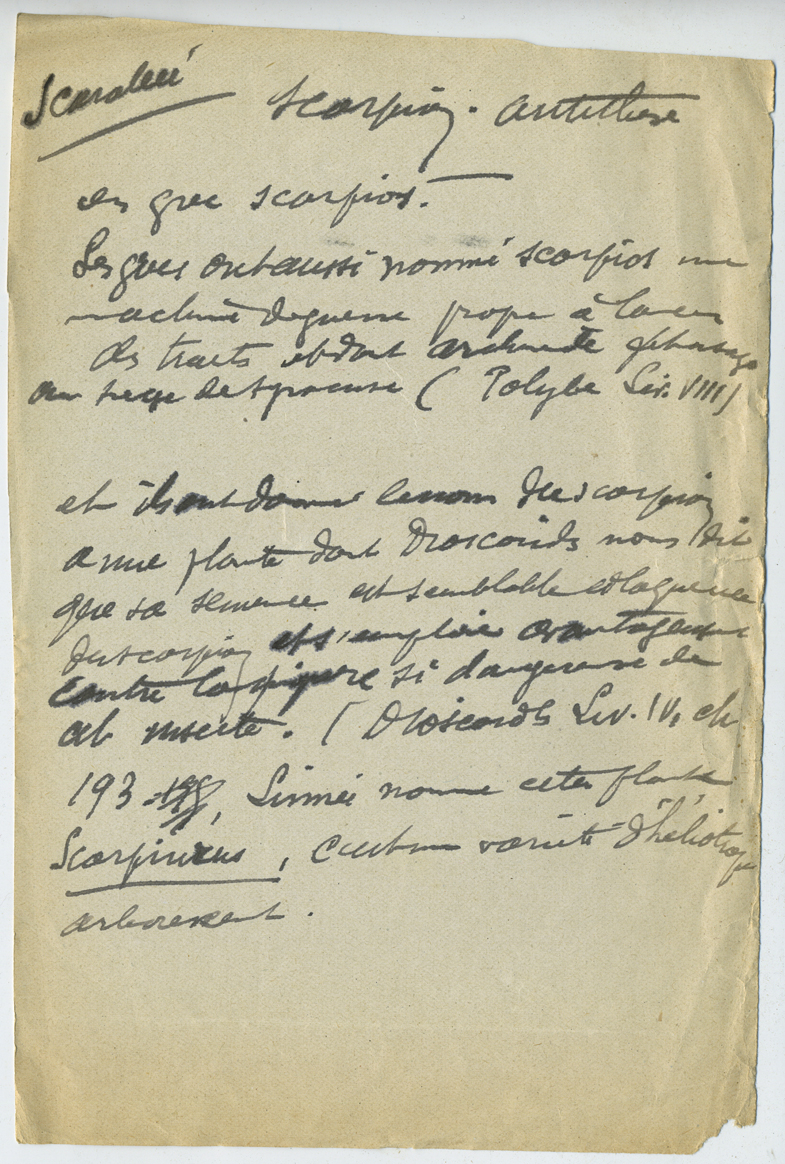 Scarabée
Scorpion - antithèse
en grec scorpios.
Les grecs ont aussi nommé scorpios une
machine de guerre propre à lancer
des traits et dont archimède fit usage
au siege de Syracuse ( Polybe Liv. VIII)
et ils ont donné le nom de scorpion
a une plante dont Dioscoride nous dit
que sa semence est semblable a la queue
du scorpion et s'emploie avantageus
contre la piqure si dangereuse de
cet insecte. ( Dioscoride Liv. IV, ch
193 , Linnée nomme cette plante
Scorpiurus , c'est une variété d'héliotrope
arborescent .